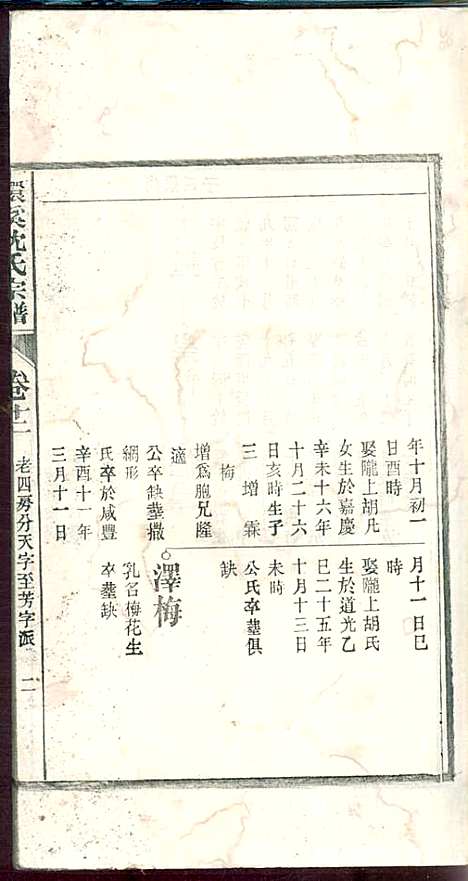 年十月初一
日酉時
娶隴上胡凡
女生於嘉慶
辛未十六年
十月二十六
日亥時生子
三 增霖
梅
增爲胞兄隆
適
公卒缺塟撒
網形
氏卒於咸豐
辛酉十一年
三月十一日
月十一日巳
時
娶隴上胡氏
生於道光乙
巳二十五年
十月十三日
未時
公氏卒塟俱
缺
澤梅
乳名梅花生
卒塟缺
環溪沈氏宗譜
卷十二
老四房分天字至芳字派
二